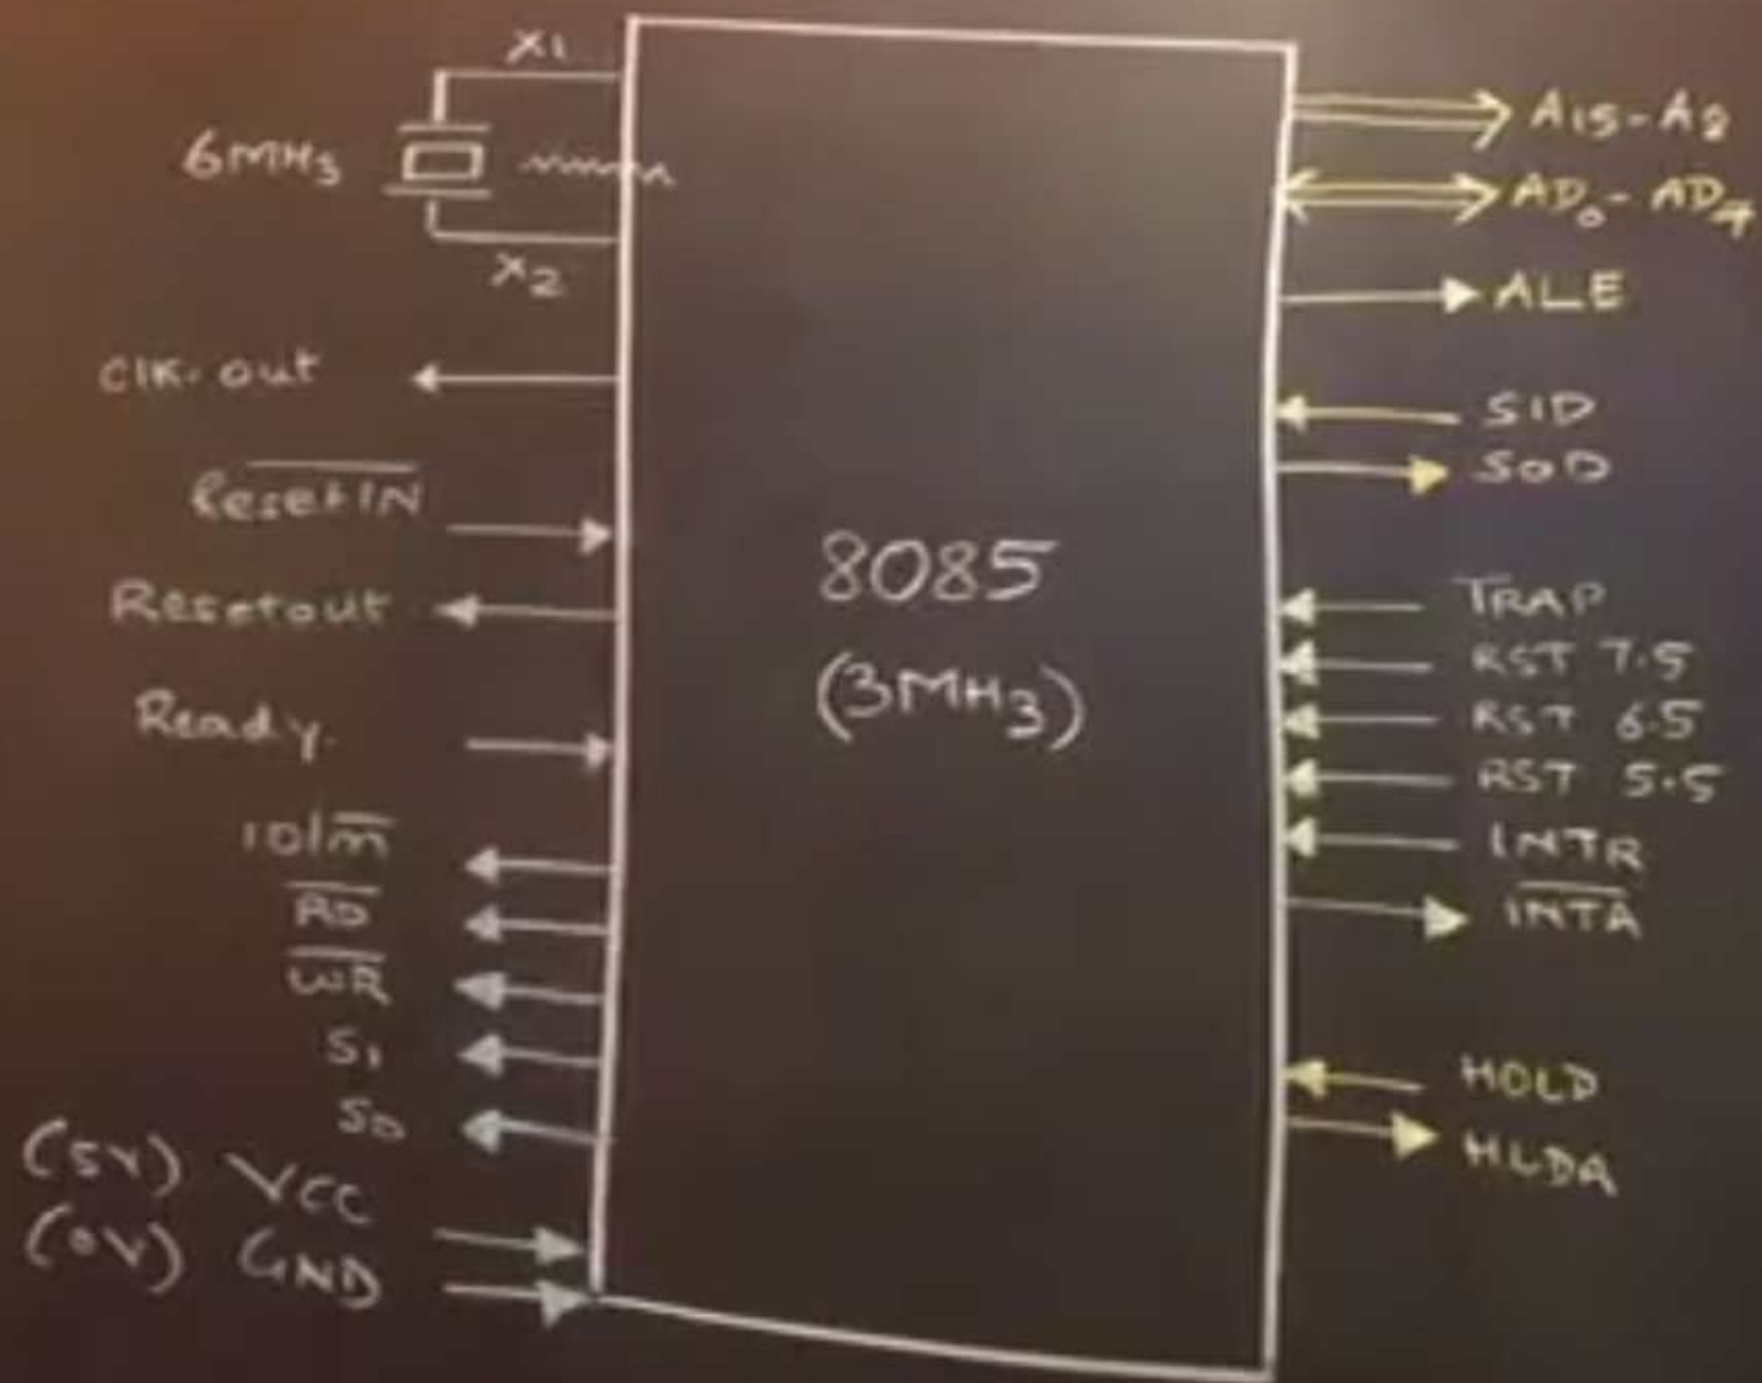 X1
6MHz
X2
Clk. out
R̅e̅s̅e̅t̅ ̅I̅N̅
Resetout
Ready.
IO/M̅
R̅D̅
W̅R̅
S1
S0
(5V) VCC
(0V) GND
8085
(3MHz)
A15-A8
AD0-AD7
ALE
SID
SOD
TRAP
RST 7.5
RST 6.5
RST 5.5
INTR
I̅N̅T̅A̅
HOLD
HLDA